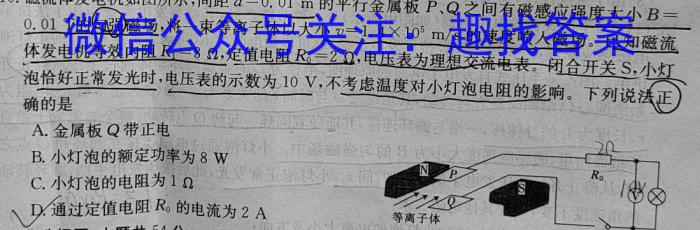 磁流体发电机如图所示,间距d=0.01 m的平行金属板P、Q之间有磁感应强度大小B=
0.01 磁场 将一束等离子体以大小 ×10⁵ m/s的速度喷入磁场。已知磁流
微信公众号关注:趣找答案
体发电机等效内阻 8 Ω,定值电阻R₀=2 Ω,电压表为理想交流电表。闭合开关S,小灯
泡恰好正常发光时,电压表的示数为10 V,不考虑温度对小灯泡电阻的影响。下列说法正
确的是
A. 金属板Q带正电
B. 小灯泡的额定功率为8 W
C. 小灯泡的电阻为1 Ω
D. 通过定值电阻R₀的电流为2 A
N
P
Q
S
等离子体
2Ω
R₀